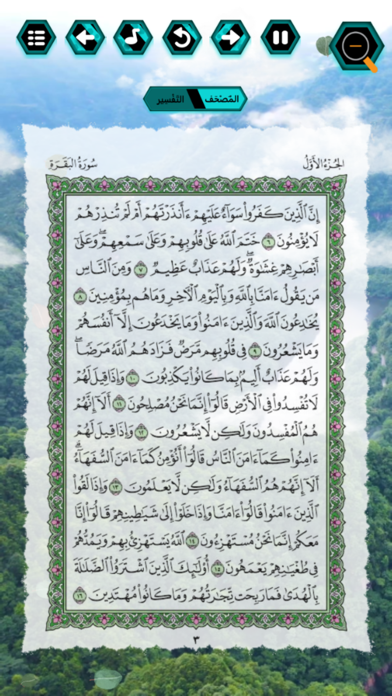 المُصْحَف التَفْسِير
الجُزْءُ الأَوَّلُ سُورَةُ البَقَرَةِ
إِنَّ ٱلَّذِينَ كَفَرُوا۟ سَوَآءٌ عَلَيْهِمْ ءَأَنذَرْتَهُمْ أَمْ لَمْ تُنذِرْهُمْ
لَا يُؤْمِنُونَ ٦ خَتَمَ ٱللَّهُ عَلَىٰ قُلُوبِهِمْ وَعَلَىٰ سَمْعِهِمْ ۖ وَعَلَىٰٓ
أَبْصَٰرِهِمْ غِشَٰوَةٌ ۖ وَلَهُمْ عَذَابٌ عَظِيمٌ ٧ وَمِنَ ٱلنَّاسِ
مَن يَقُولُ ءَامَنَّا بِٱللَّهِ وَبِٱلْيَوْمِ ٱلْءَاخِرِ وَمَا هُم بِمُؤْمِنِينَ ٨
يُخَٰدِعُونَ ٱللَّهَ وَٱلَّذِينَ ءَامَنُوا۟ وَمَا يَخْدَعُونَ إِلَّآ أَنفُسَهُمْ
وَمَا يَشْعُرُونَ ٩ فِى قُلُوبِهِم مَّرَضٌ فَزَادَهُمُ ٱللَّهُ مَرَضًا ۖ
وَلَهُمْ عَذَابٌ أَلِيمٌۢ بِمَا كَانُوا۟ يَكْذِبُونَ ١٠ وَإِذَا قِيلَ لَهُمْ
لَا تُفْسِدُوا۟ فِى ٱلْأَرْضِ قَالُوٓا۟ إِنَّمَا نَحْنُ مُصْلِحُونَ ١١ أَلَآ إِنَّهُمْ
هُمُ ٱلْمُفْسِدُونَ وَلَٰكِن لَّا يَشْعُرُونَ ١٢ وَإِذَا قِيلَ لَهُمْ
ءَامِنُوا۟ كَمَآ ءَامَنَ ٱلنَّاسُ قَالُوٓا۟ أَنُؤْمِنُ كَمَآ ءَامَنَ ٱلسُّفَهَآءُ ۗ
أَلَآ إِنَّهُمْ هُمُ ٱلسُّفَهَآءُ وَلَٰكِن لَّا يَعْلَمُونَ ١٣ وَإِذَا لَقُوا۟
ٱلَّذِينَ ءَامَنُوا۟ قَالُوٓا۟ ءَامَنَّا وَإِذَا خَلَوْا۟ إِلَىٰ شَيَٰطِينِهِمْ قَالُوٓا۟ إِنَّا
مَعَكُمْ إِنَّمَا نَحْنُ مُسْتَهْزِءُونَ ١٤ ٱللَّهُ يَسْتَهْزِئُ بِهِمْ وَيَمُدُّهُمْ
فِى طُغْيَٰنِهِمْ يَعْمَهُونَ ١٥ أُو۟لَٰٓئِكَ ٱلَّذِينَ ٱشْتَرَوُا۟ ٱلضَّلَٰلَةَ
بِٱلْهُدَىٰ فَمَا رَبِحَت تِّجَٰرَتُهُمْ وَمَا كَانُوا۟ مُهْتَدِينَ ١٦
٣